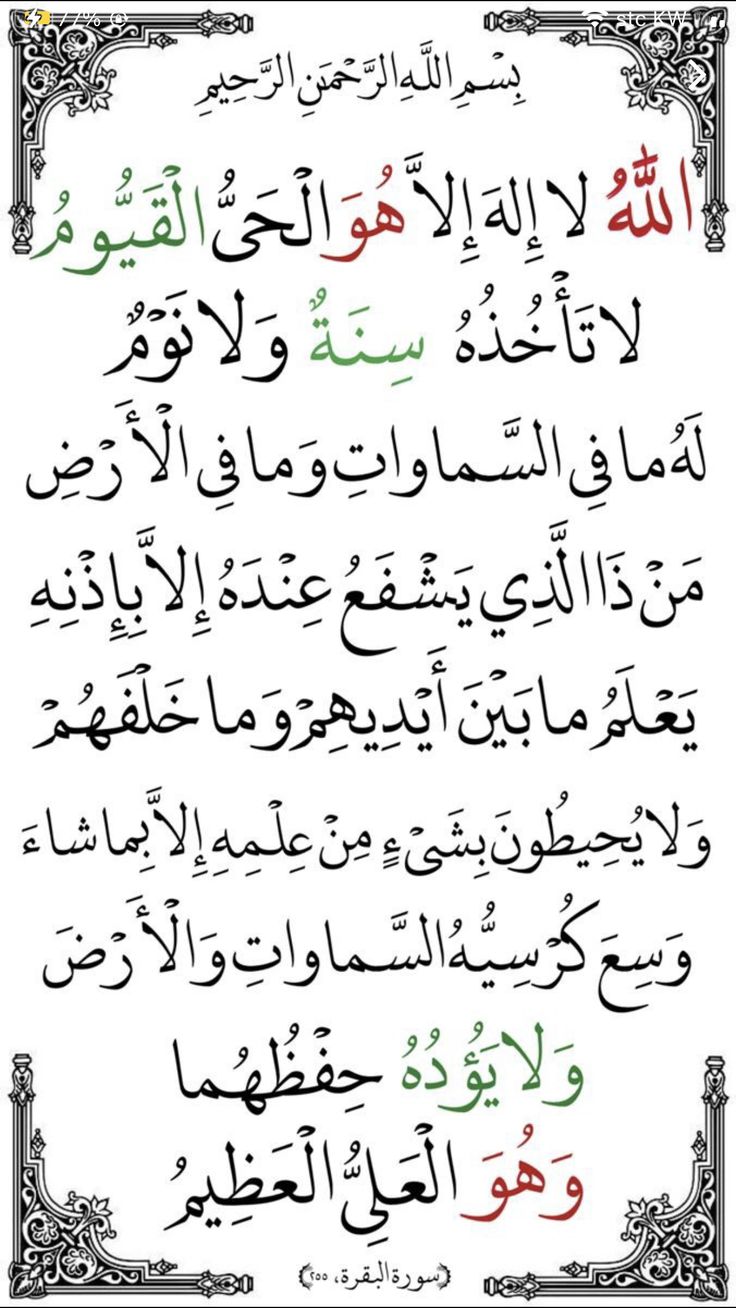 77%
stc KW
بِسْمِ اللَّهِ الرَّحْمَنِ الرَّحِيمِ
اللَّهُ لا إِلهَ إِلاَّ هُوَ الْحَىُّ الْقَيُّومُ
لا تَأْخُذُهُ سِنَةٌ وَلا نَوْمٌ
لَهُ ما فِي السَّماواتِ وَما فِي الْأَرْضِ
مَنْ ذَا الَّذِي يَشْفَعُ عِنْدَهُ إِلاَّ بِإِذْنِهِ
يَعْلَمُ ما بَيْنَ أَيْدِيهِمْ وَما خَلْفَهُمْ
وَلا يُحِيطُونَ بِشَىْءٍ مِنْ عِلْمِهِ إِلاَّ بِما شاءَ
وَسِعَ كُرْسِيُّهُ السَّماواتِ وَالْأَرْضَ
وَلا يَؤُدُهُ حِفْظُهُما
وَهُوَ الْعَلِىُّ الْعَظِيمُ
﴿سورة البقرة، ٢٥٥﴾